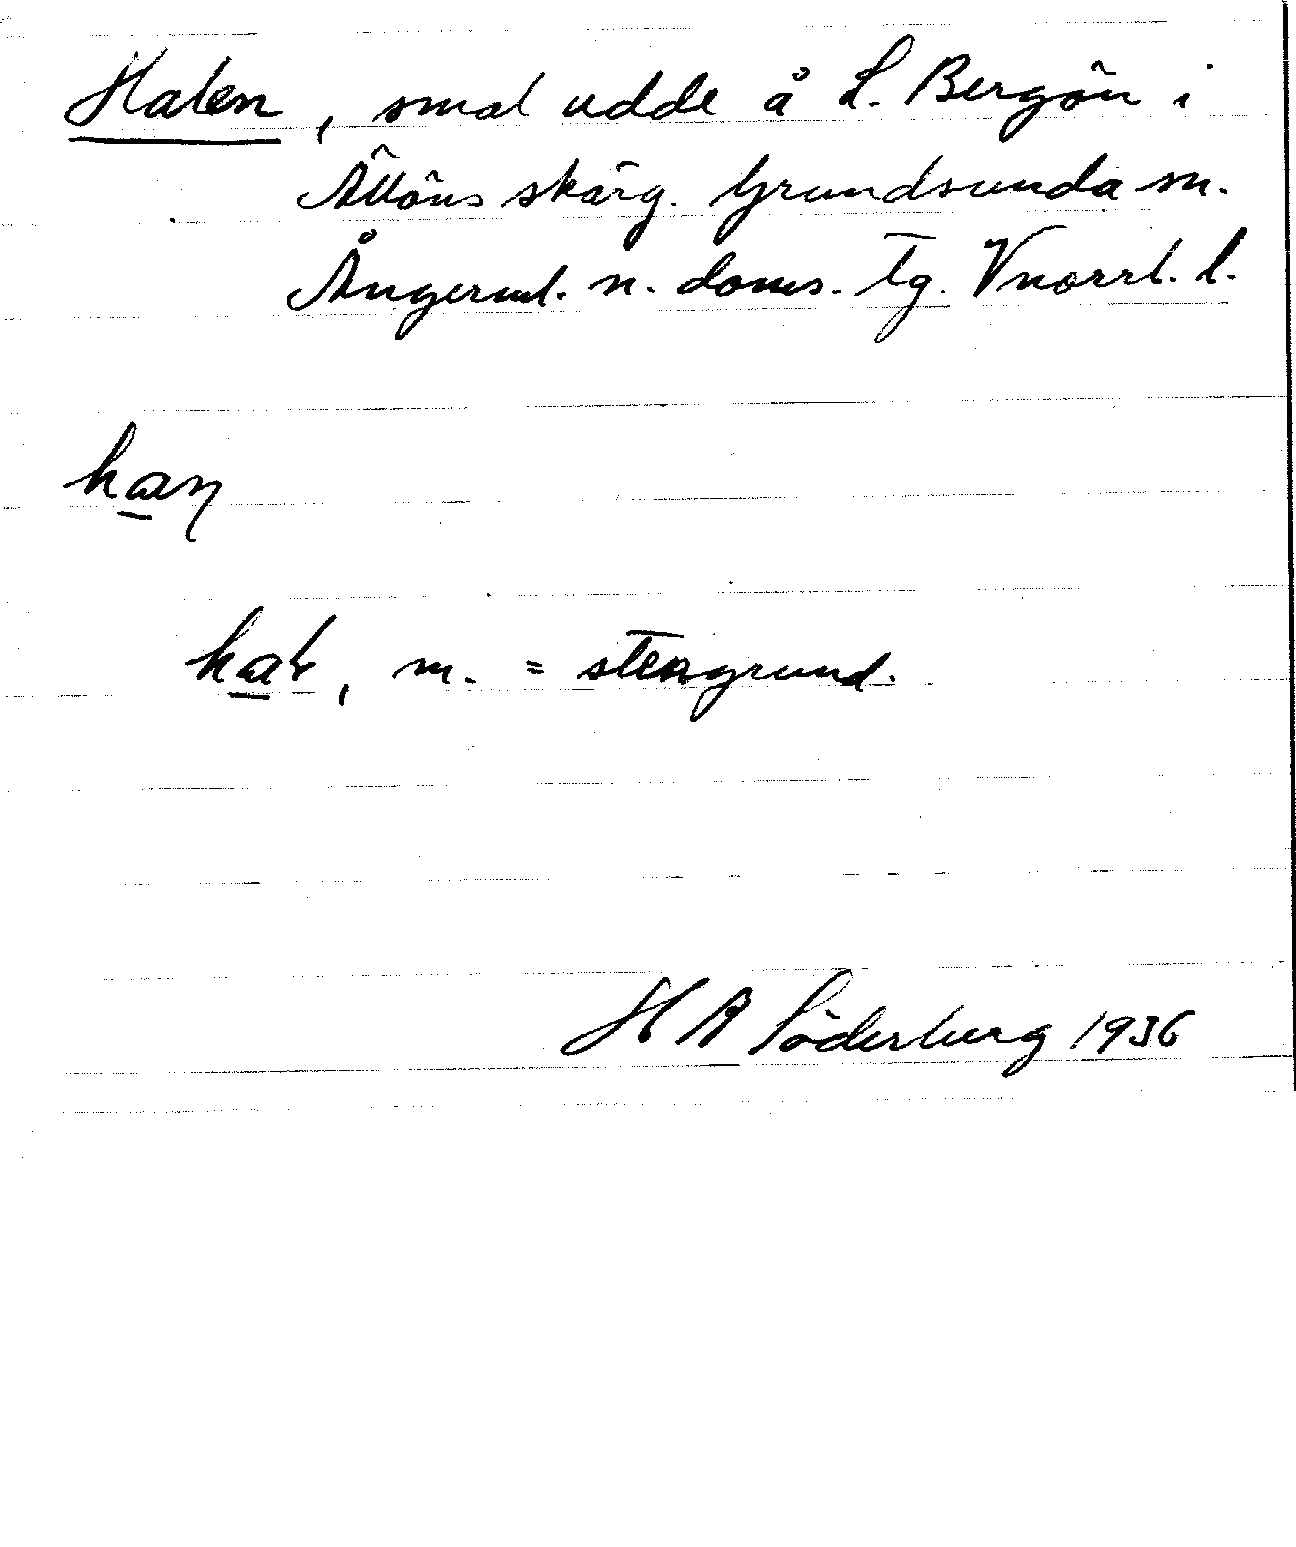 Halen, smal udde å L. Bergön i
Ällöns skärg. Grundsunda sn.
Ångerml. n. doms. tg. Vnorrl. l.
han
hal, m. = stengrund.
H A Söderberg 1936